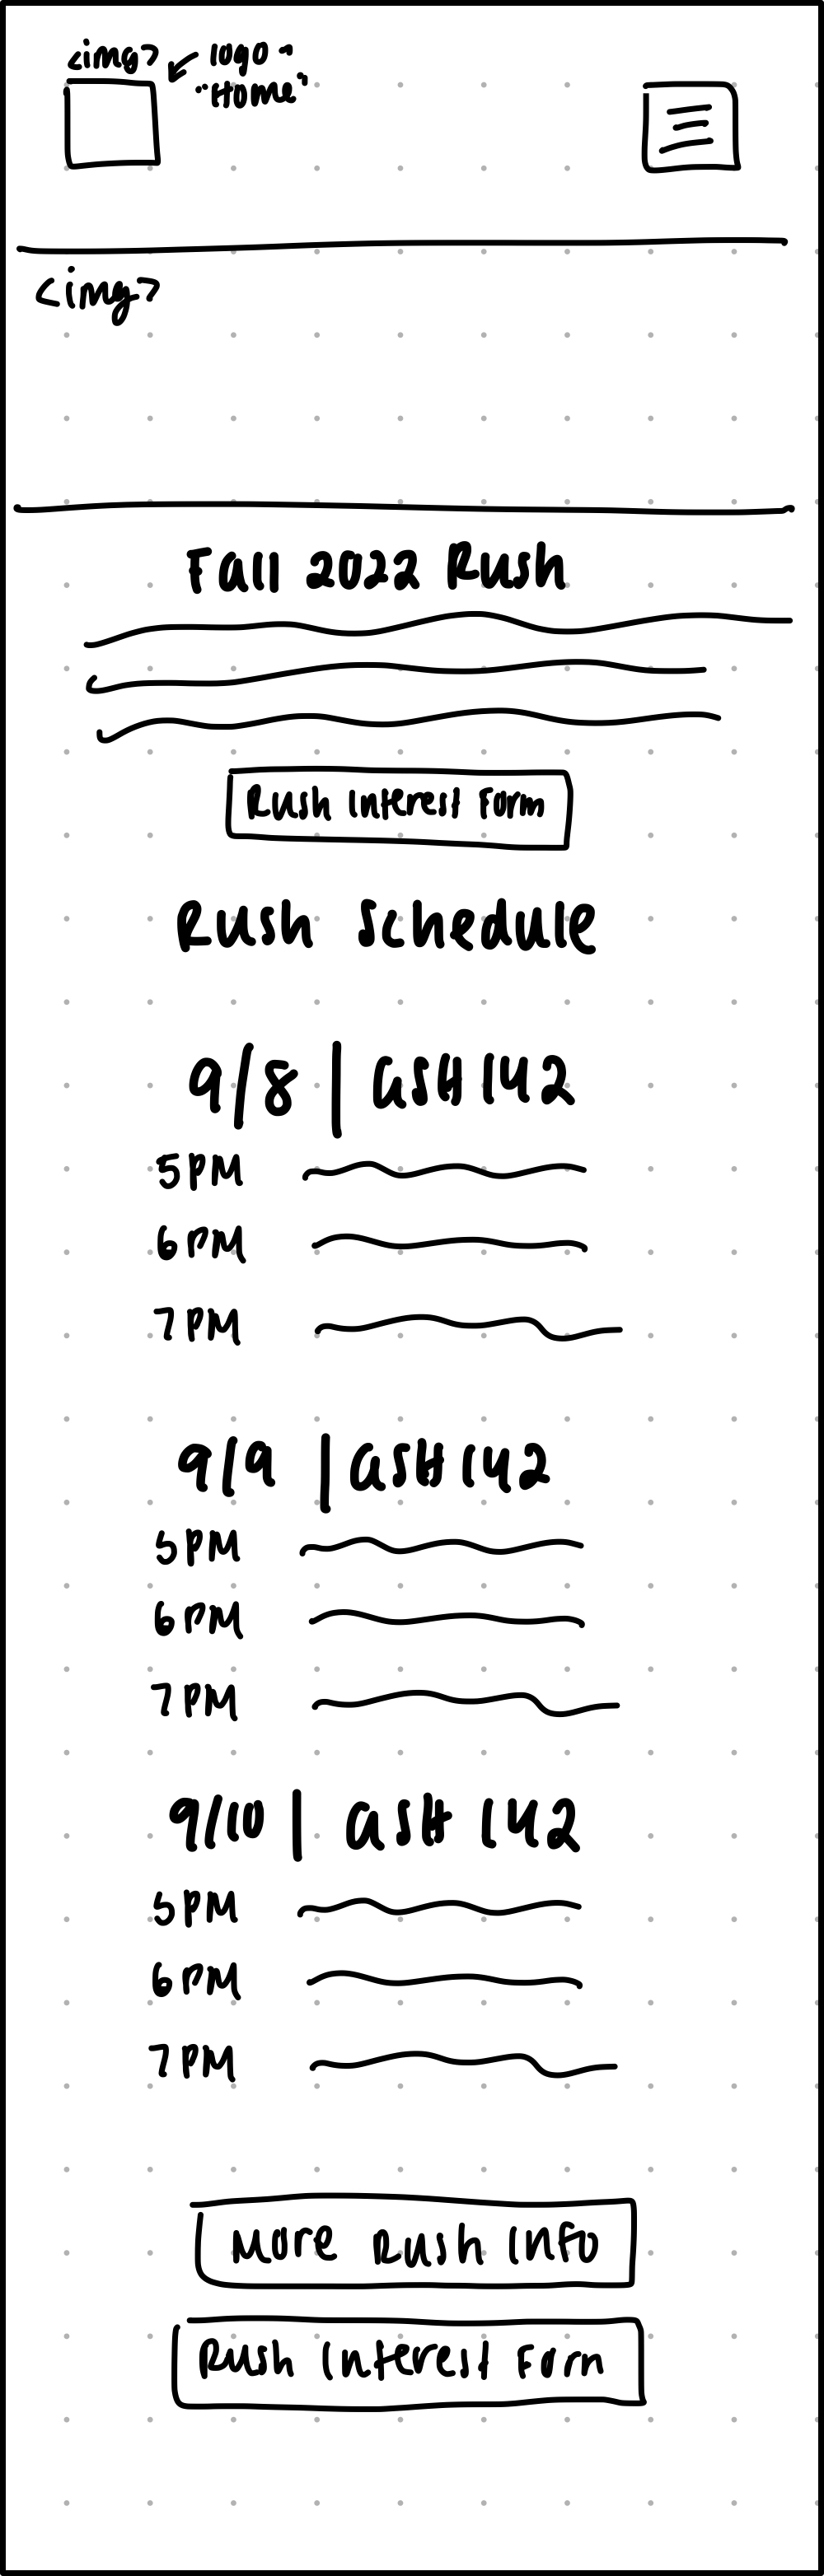 <img> logo -
"Home"
<img>
Fall 2022 Rush
Rush Interest Form
Rush Schedule
9/8 | ASH 142
5PM
6PM
7PM
9/9 | ASH 142
5PM
6PM
7PM
9/10 | ASH 142
5PM
6PM
7PM
More Rush Info
Rush Interest Form